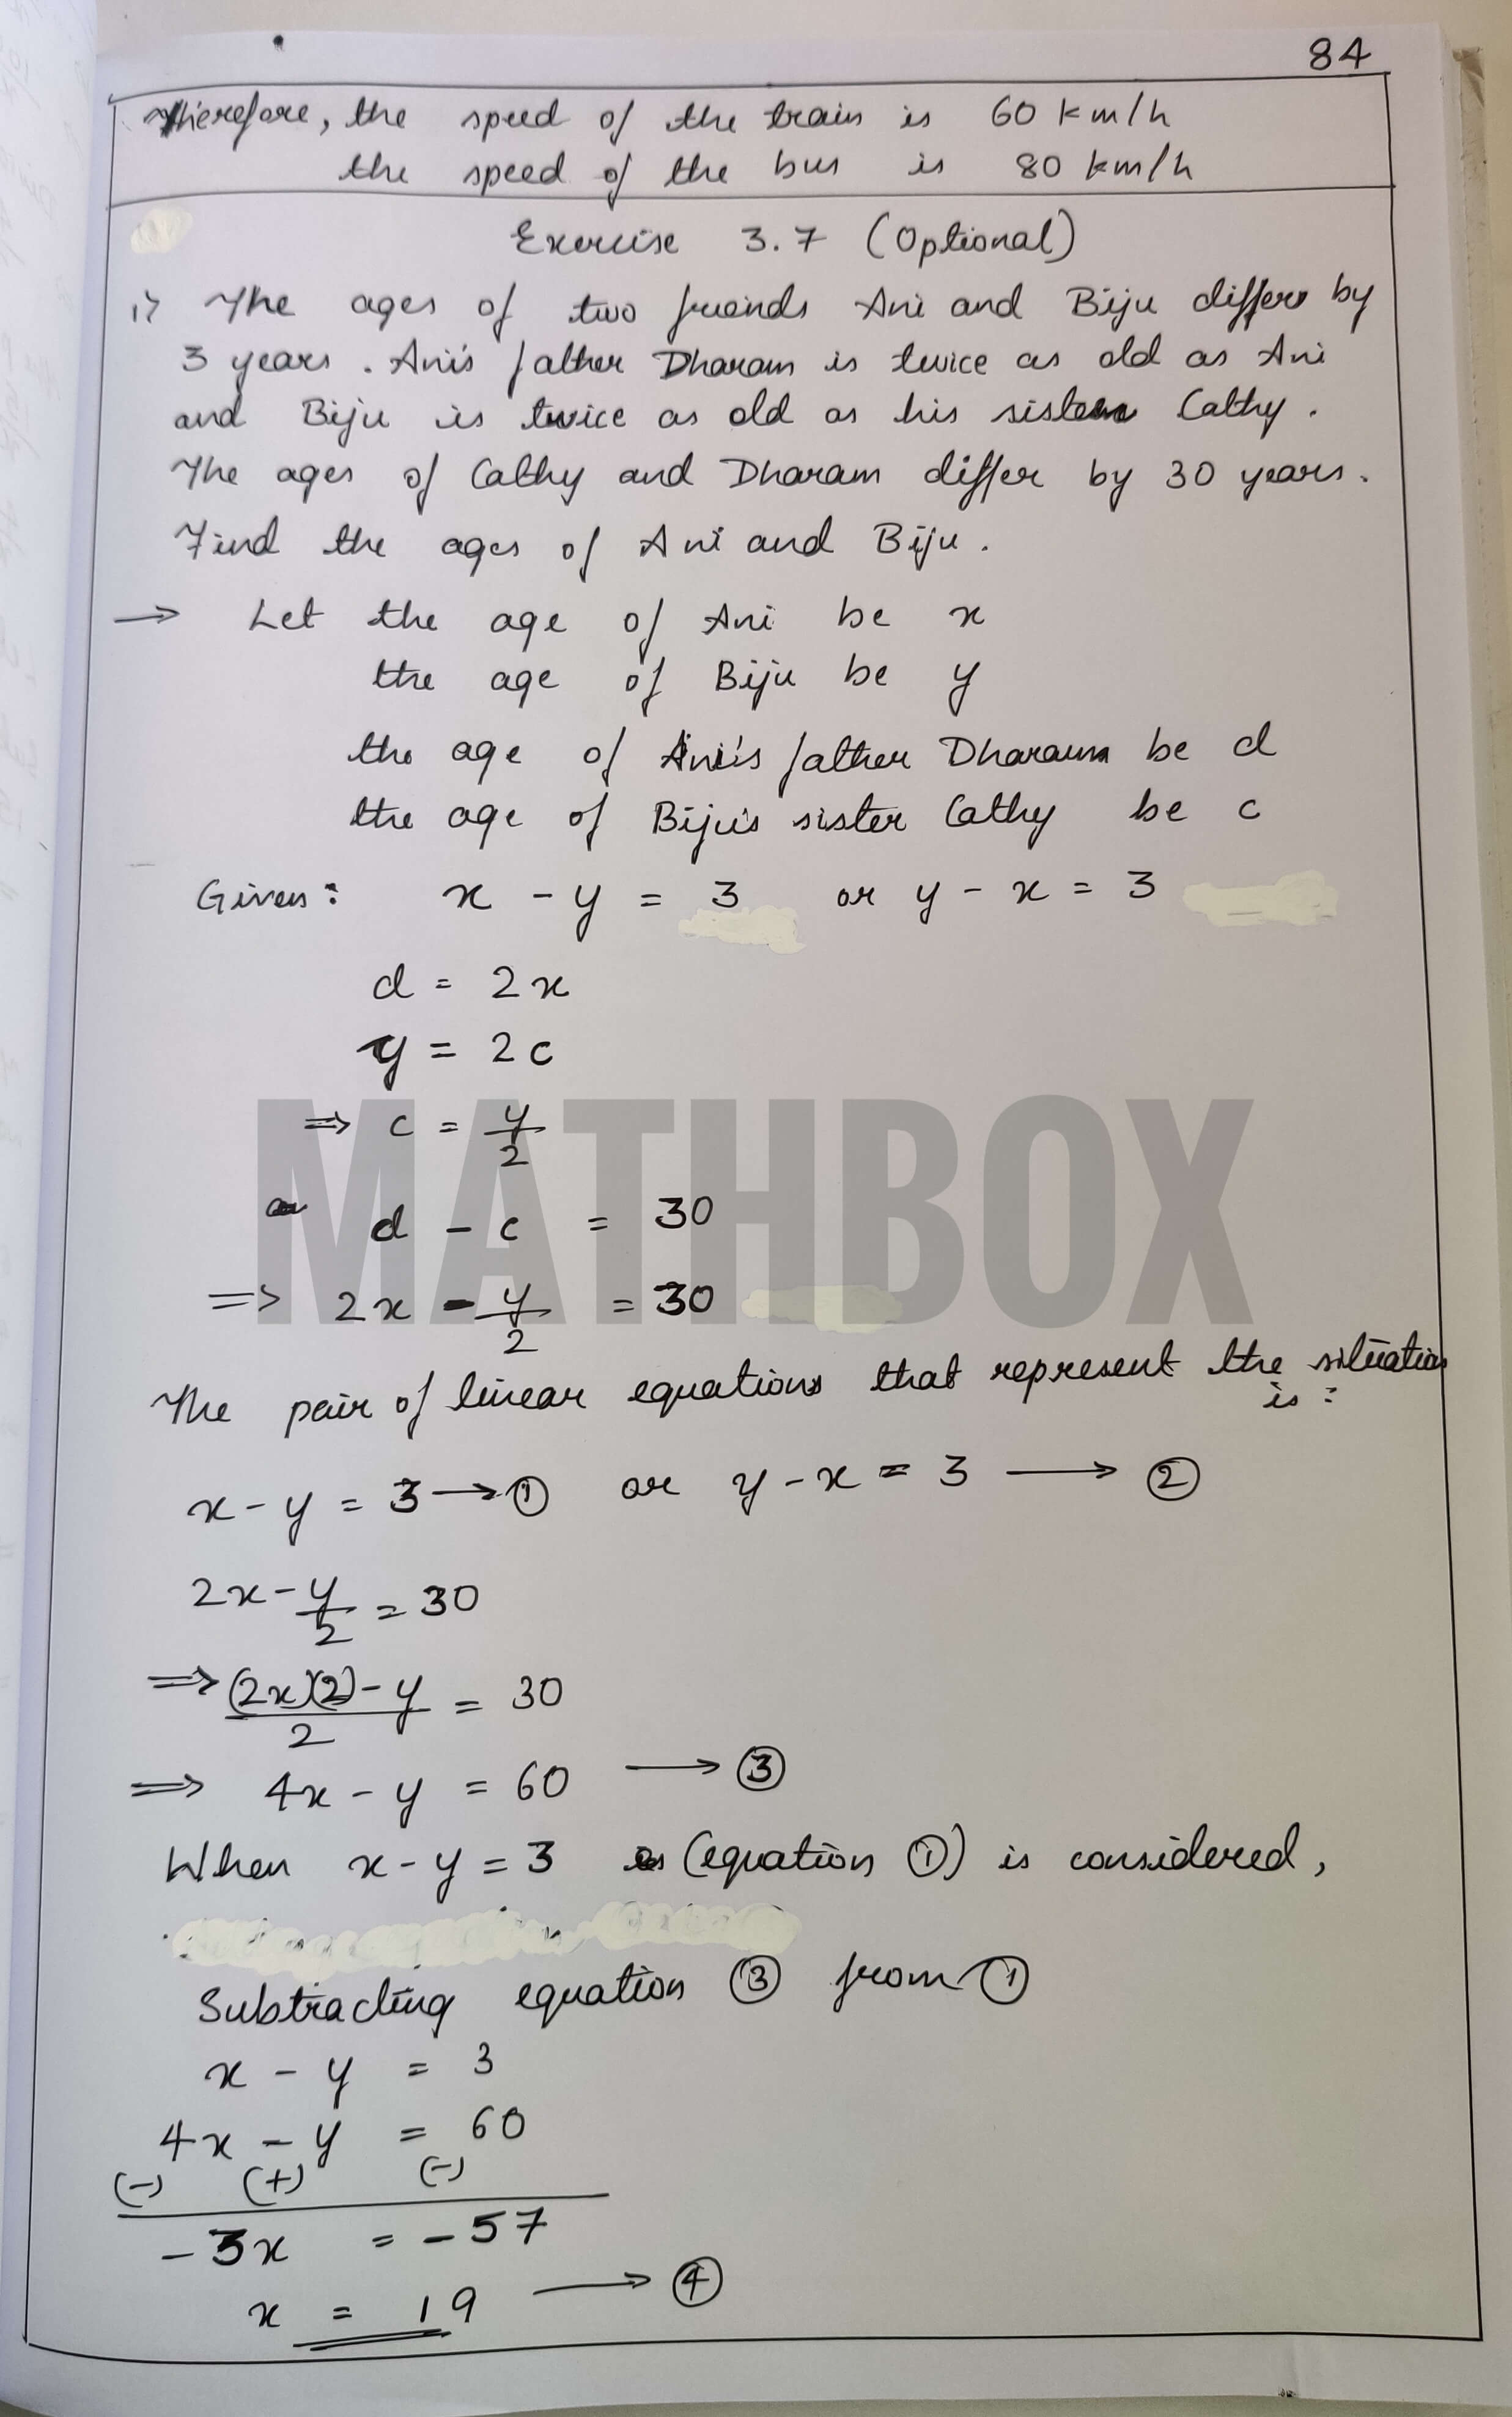 84
Therefore, the speed of the train is 60 km/h
the speed of the bus is 80 km/h
Exercise 3.7 (Optional)
1) The ages of two friends Ani and Biju differ by
3 years. Ani's father Dharam is twice as old as Ani
and Biju is twice as old as his sister Cathy.
The ages of Cathy and Dharam differ by 30 years.
Find the ages of Ani and Biju.
→ Let the age of Ani be x
the age of Biju be y
the age of Ani's father Dharam be d
the age of Biju's sister Cathy be c
Given: x - y = 3 or y - x = 3
d = 2x
y = 2c
⇒ c = y/2
d - c = 30
⇒ 2x - y/2 = 30
MATHBOX
The pair of linear equations that represent the situation
is:
x - y = 3 → ① or y - x = 3 → ②
2x - y/2 = 30
⇒ (2x)(2) - y / 2 = 30
⇒ 4x - y = 60 → ③
When x - y = 3 (equation ①) is considered,
Subtracting equation ③ from ①
x - y = 3
4x - y = 60
(-) (+) (-)
-3x = -57
x = 19 → ④